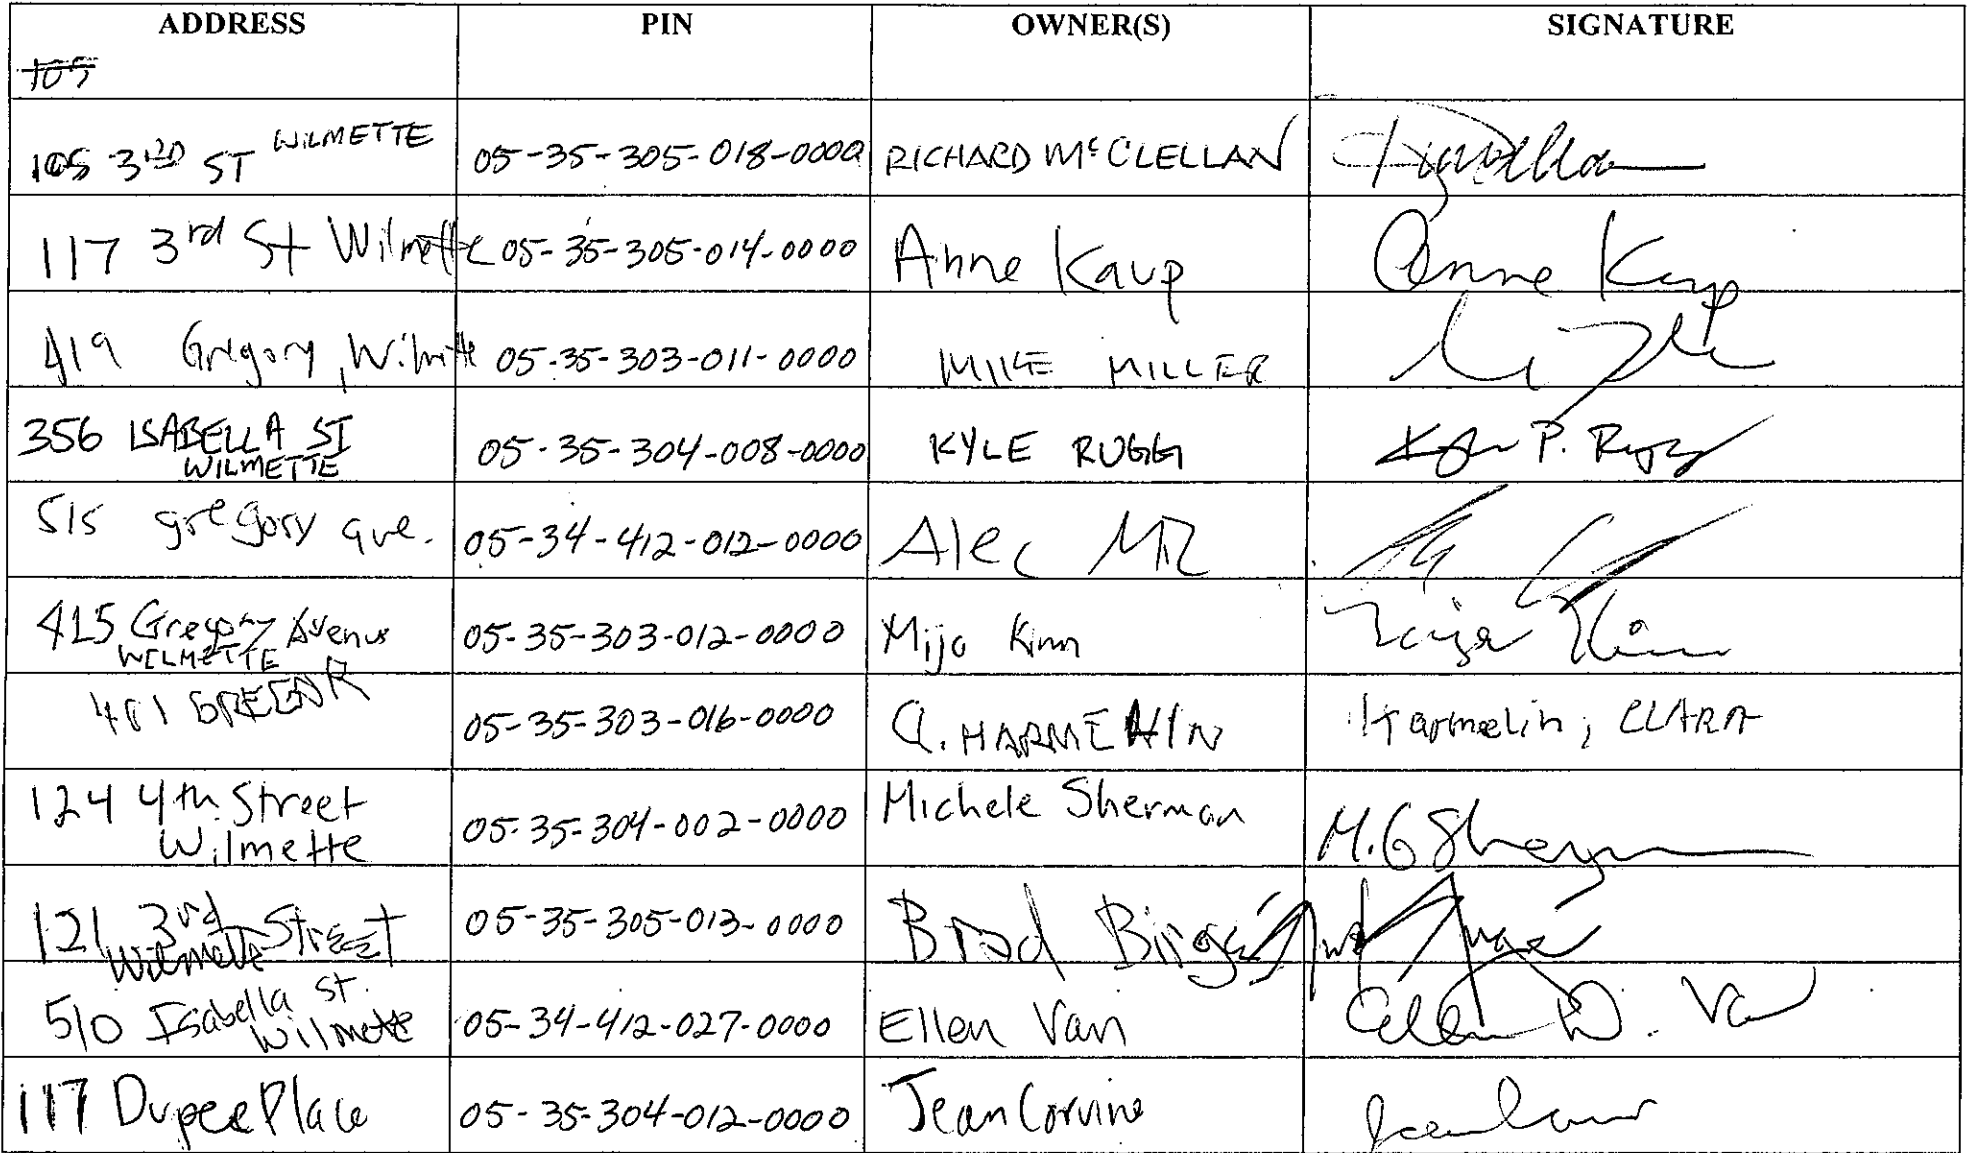 ADDRESS PIN OWNER(S) SIGNATURE
105
105 3RD ST WILMETTE 05-35-305-018-0000 RICHARD McCLELLAN
117 3rd St Wilmette 05-35-305-014-0000 Anne Kaup Anne Kaup
419 Gregory, Wilmette 05-35-303-011-0000 MIKE MILLER
356 ISABELLA ST 05-35-304-008-0000 KYLE RUGG Kyle P. Rugg
WILMETTE
515 gregory ave. 05-34-412-012-0000 Alec
415 Gregory Avenue 05-35-303-012-0000 Mija Kim Mija Kim
WILMETTE
401 05-35-303-016-0000 Harmelin, CLARA
124 4th Street 05-35-304-002-0000 Michele Sherman M. G Sherman
Wilmette
121 3rd Street 05-35-305-013-0000 Brad
Wilmette
510 Isabella St. 05-34-412-027-0000 Ellen Van Ellen D. Van
Wilmette
117 Dupee Place 05-35-304-012-0000 Jean Corvine